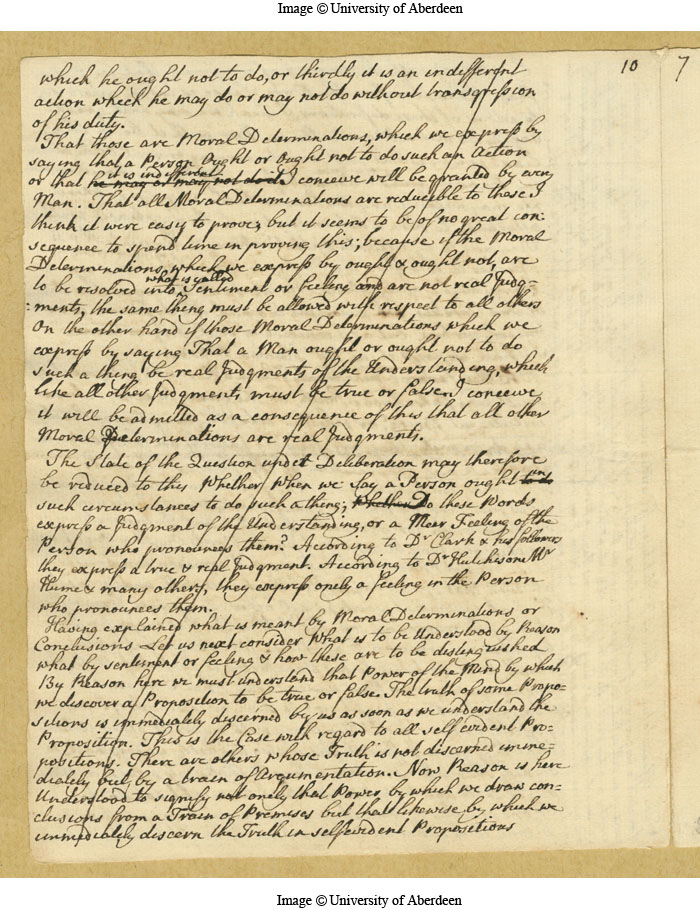 Image © University of Aberdeen
10
7
which he ought not to do, or thirdly it is an indifferent
action which he may do or may not do without transgression
of his duty.
That those are Moral Determinations, which we express by
saying that a Person Ought or Ought not to do such an Action
it is indifferent
or that he may or may not do it I conceive will be granted by every
Man. That all Moral Determinations are reducible to these I
think it were easy to prove, but it seems to be of no great con:
sequence to spend time in proving this; because if the Moral
Determinations, which we express by ought & ought not, are
what is called
to be resolved into Sentiment or feeling and are not real Judg-
:ments, the same thing must be allowed with respect to all others
On the other hand if those Moral Determinations which we
express by saying That a Man ought or ought not to do
such a thing be real Judgments of the Understanding, which
like all other Judgments must be true or false. I conceive
it will be admitted as a consequence of this that all other
Moral Determinations are real Judgments.
The State of the Question under Deliberation may therefore
be reduced to this Whether when we say a Person ought to do in
such circumstances to do such a thing; Whether Do these Words
express a Judgment of the Understanding, or a Meer Feeling of the
Person who pronounces them? According to Dr Clark & his followers
they express a true & real Judgment. According to Dr Hutchison Mr
Hume & many others, they express onely a feeling in the Person
who pronounces them.
Having explained what is meant by Moral Determinations or
Conclusions Let us next consider What is to be Understood by Reason
what by sentiment or feeling & how these are to be distinguished
By Reason here we must understand that Power of the Mind by which
we discover a Proposition to be true or false. The truth of some Propo=
sitions is immediately discerned by us as soon as we understand the
Proposition. This is the Case with regard to all self evident Pro=
positions. There are others whose Truth is not discerned imme=
diately but by a train of Argumentation. Now Reason is here
Understood to signify not onely that Power by which we draw con=
clusions from a Train of Premises but that likewise by which we
immediately discern the Truth in selfevident Propositions
Image © University of Aberdeen